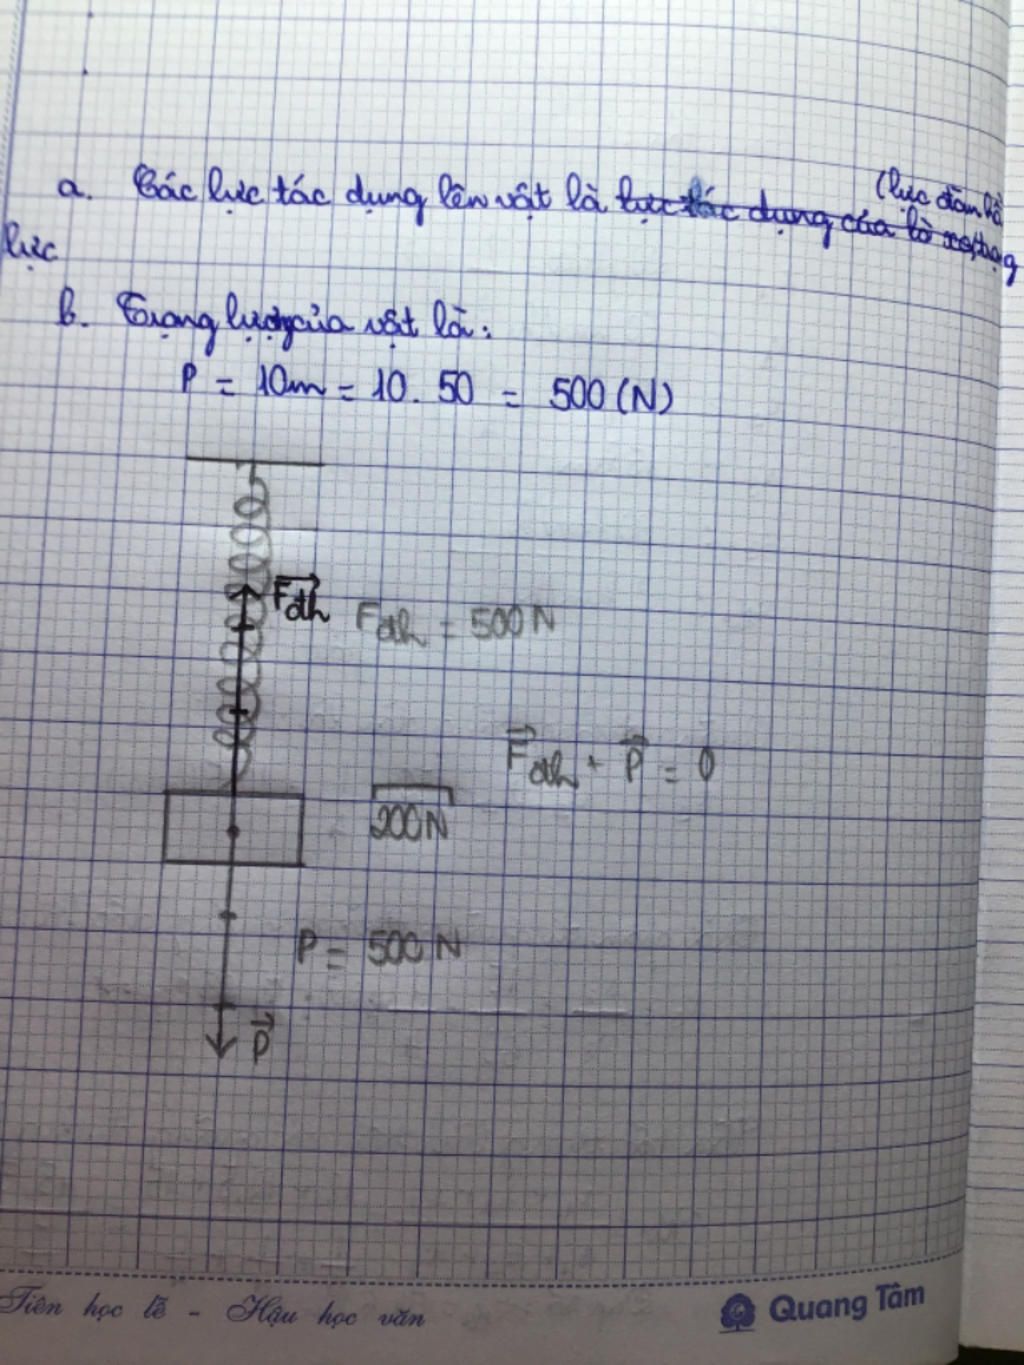 a. Các lực tác dụng lên vật là lực tác dụng của lò xo, trọng
(lực đàn hồi
lực
b. Trọng lượng của vật là:
P = 10m = 10. 50 = 500 (N)
F⃗đh Fđh = 500N
F⃗đh + P⃗ = 0
200N
P = 500N
P⃗
Tiên học lễ - Hậu học văn
Quang Tâm